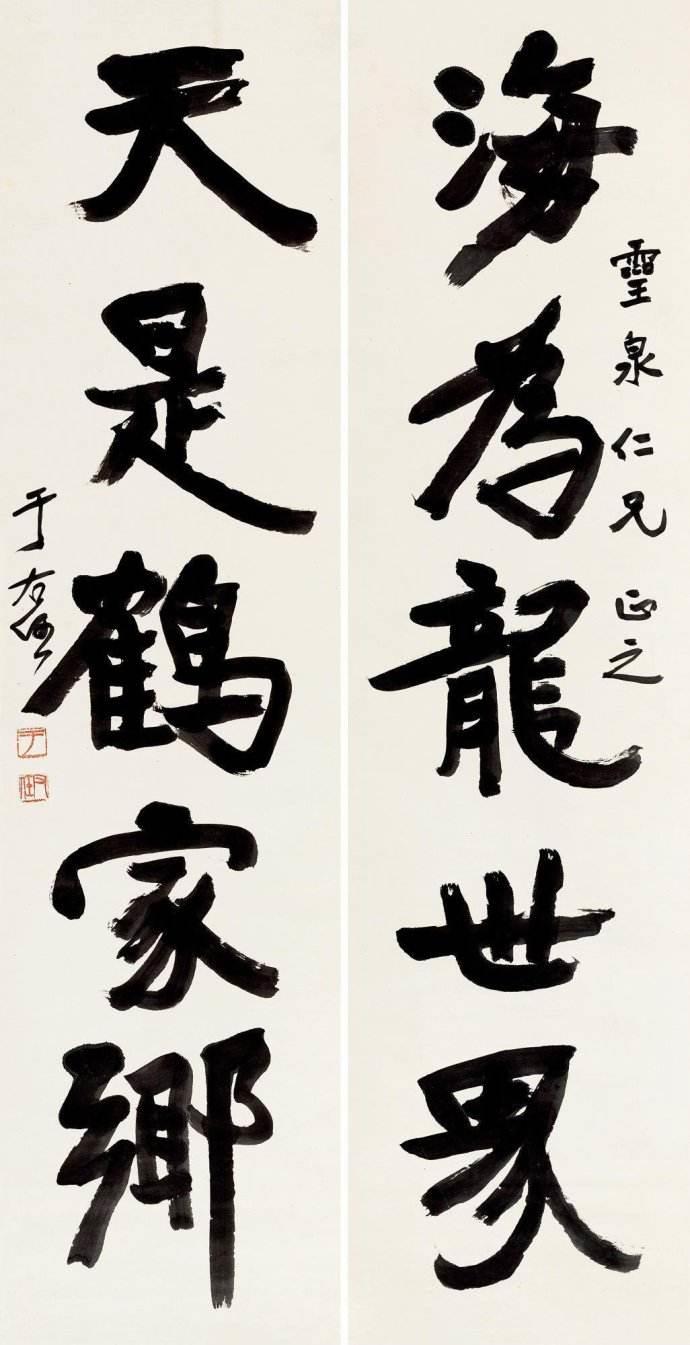 靈泉仁兄 正之
海為龍世界
天是鶴家鄉
于右任